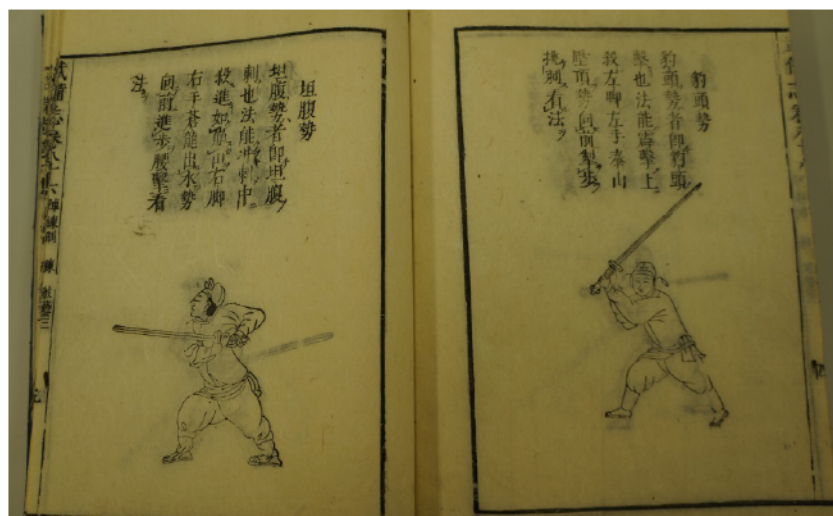 豹頭勢
豹頭勢者即豹頭
擊也法能霹擊上
殺左脚左手泰山
壓頂勢向前掣步
挑刺看法
坦腹勢
坦腹勢者即坦腹
刺也法能冲刺中
殺進如崩山右脚
右手蒼龍出水勢
向前進步腰擊看
法
武備志卷八十六